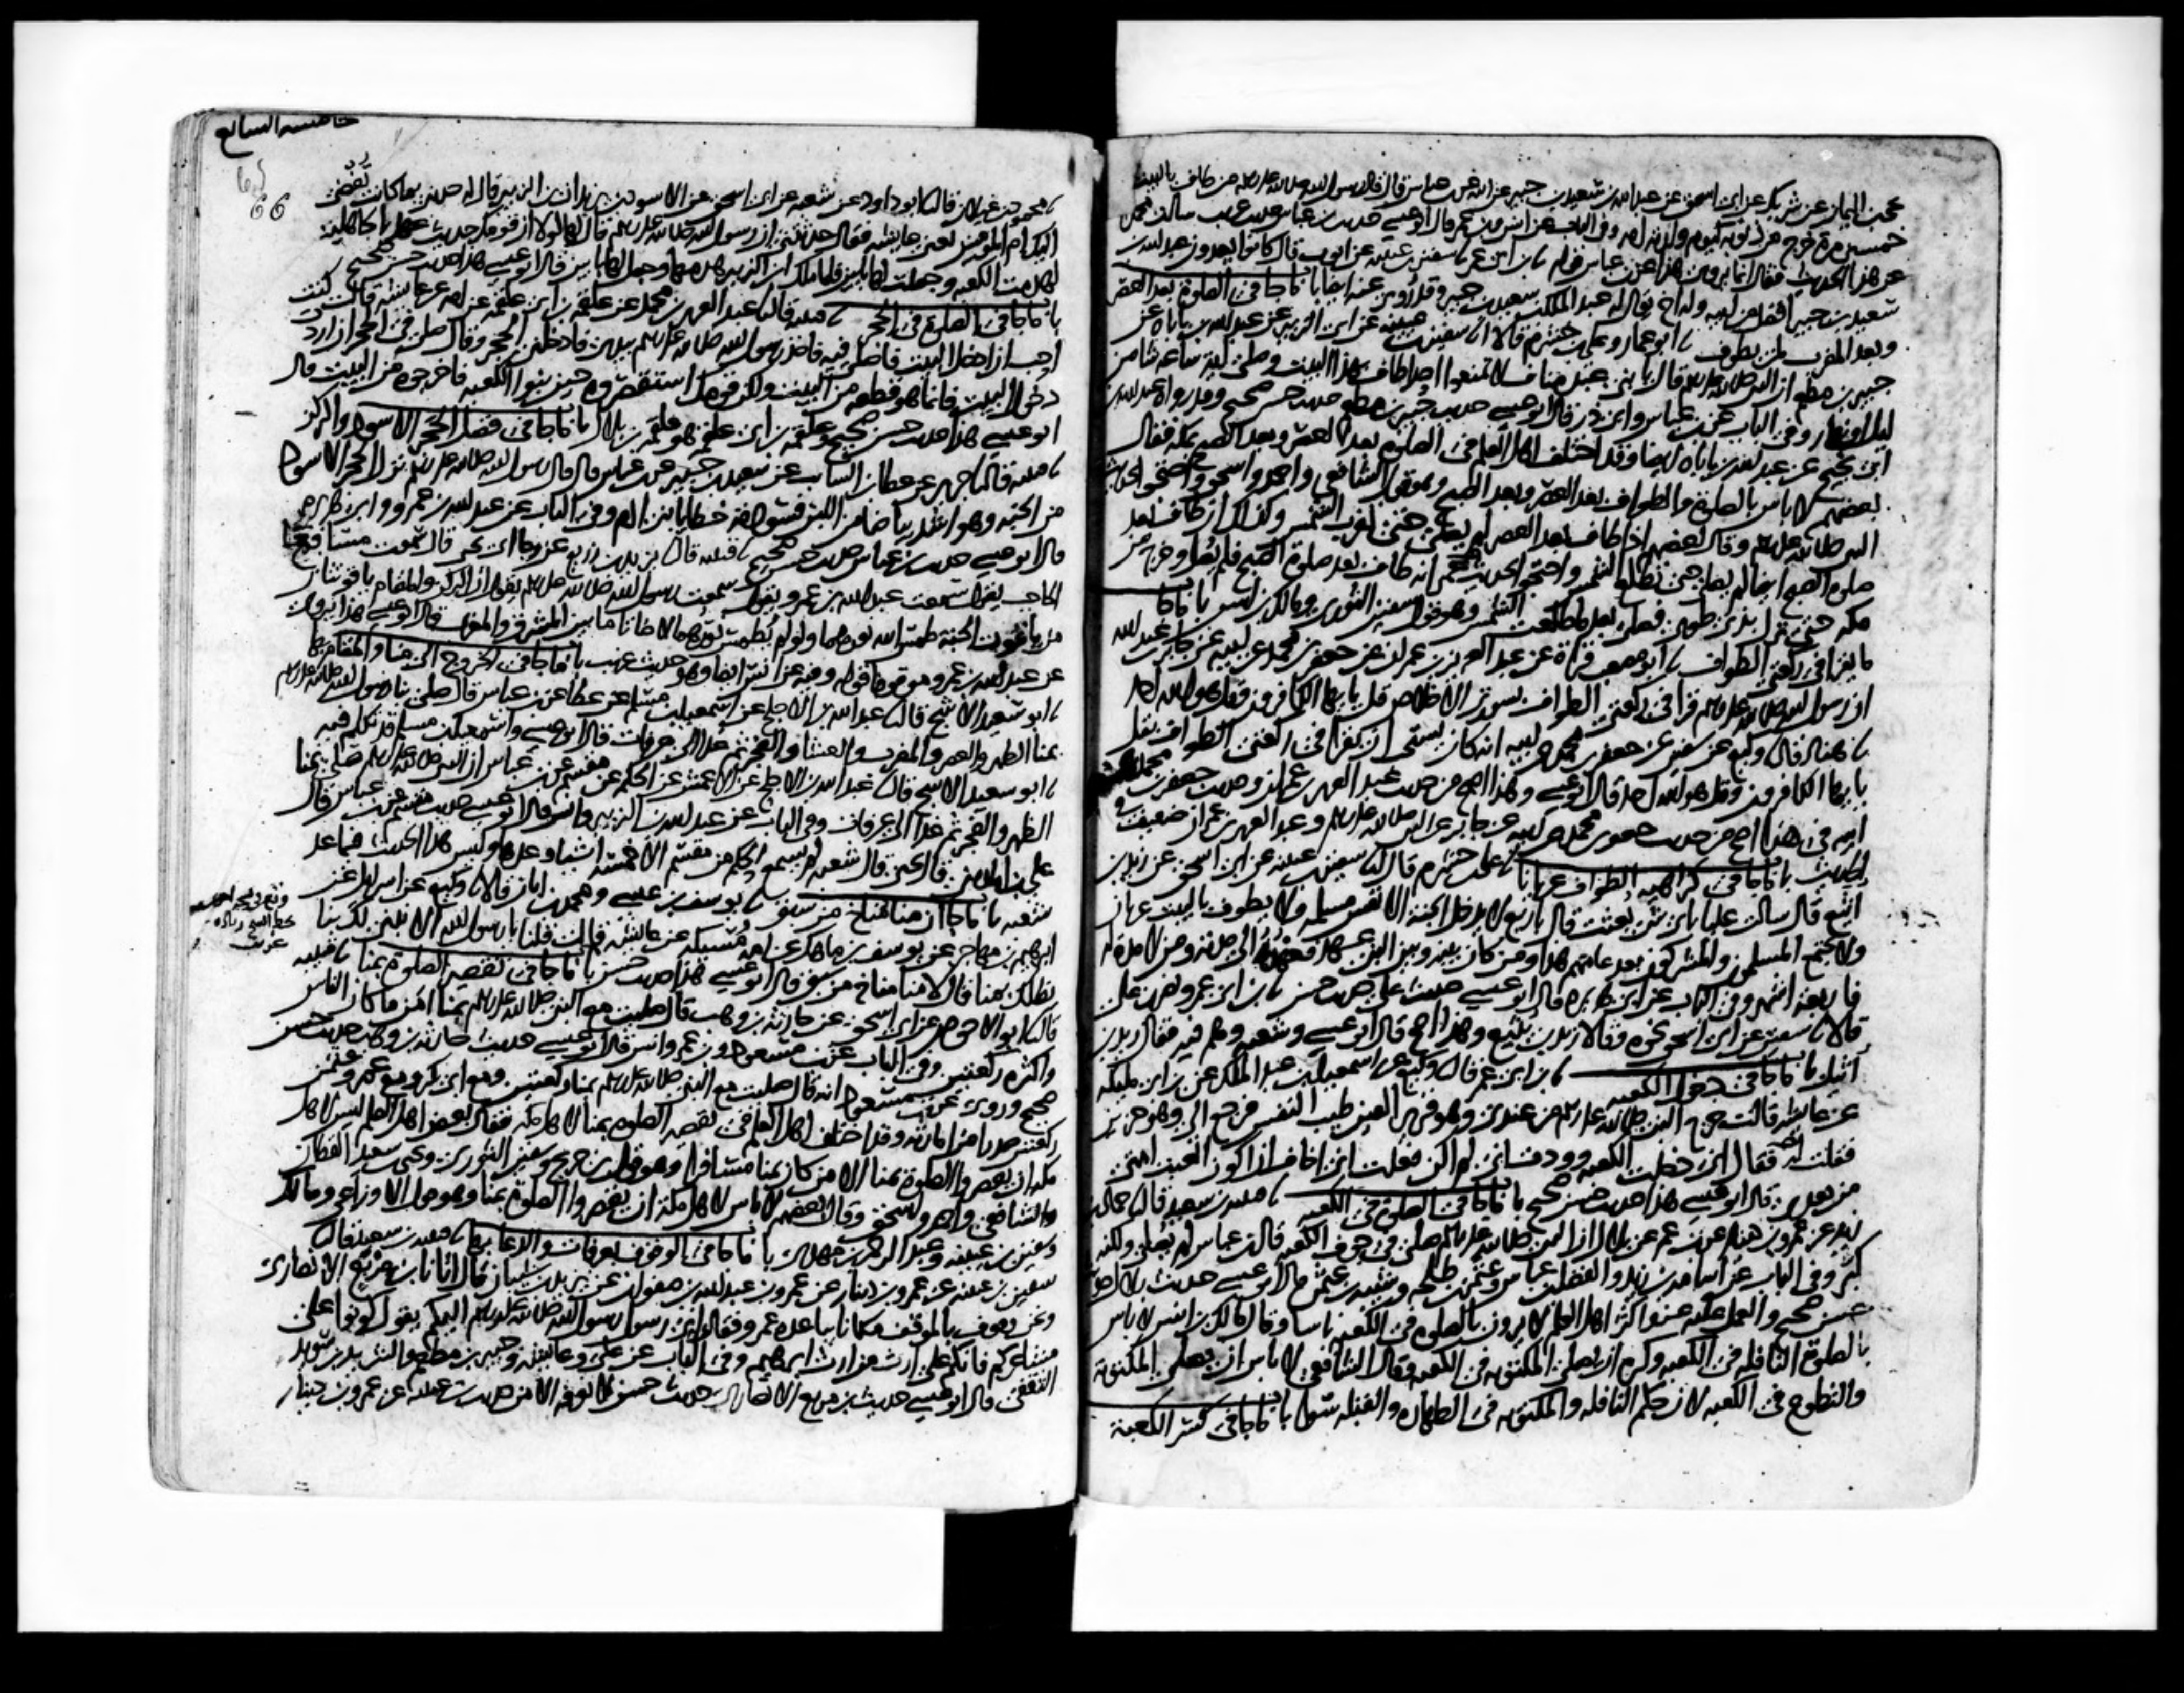 عن شريك عن ابي اسحق عن عبد الله بن سعيد بن جبير عن ابيه عن بن عباس قال قال رسول الله صلى الله عليه وسلم من طاف بالبيت
خمسين مرة خرج من ذنوبه كيوم ولدته امه وفي الباب عن انس وبن عمر قال ابو عيسى حديث بن عباس حديث غريب سالت محمدا
عن هذا الحديث فقال انما يروى هذا عن بن عباس قوله بن ابي عمر سفين بن عيينه عن ايوب قال كانوا يعدون عبد الله بن
سعيد بن جبير افضل من ابيه وله اخ يقال له عبد الملك بن سعيد بن جبير وقد روى عنه ايضا باب ما جا في الصلوة بعد العصر
وبعد المغرب لمن يطوف ابو عمار وعلي بن خشرم قالا سفين بن عيينه عن ابي الزبير عن عبد الله بن باباه عن
جبير بن مطعم ان النبي صلى الله عليه وسلم قال يا بني عبد مناف لا تمنعوا احدا طاف بهذا البيت وصلى ايه ساعه شا من
ليل او نهار وفي الباب عن بن عباس وابي ذر قال ابو عيسى حديث جبير بن مطعم حديث حسن صحيح وقد رواه عبد الله بن
ابي نجيح عن عبد الله بن باباه ايضا وقد اختلف اهل العلم في الصلوة بعد العصر وبعد الصبح بمكه فقال
بعضهم لا باس بالصلوة والطواف بعد العصر وبعد الصبح وهو قول الشافعي واحمد واسحق واحتجوا بحديث
النبي صلى الله عليه وسلم وقال بعضهم اذا طاف بعد العصر لم يصلي حتى تغرب الشمس وكذلك ان طاف بعد
صلوة الصبح ايضا لم يصل حتى تطلع الشمس واحتجوا بحديث عمر انه طاف بعد صلوة الصبح فلم يصل وخرج من
مكه حتى نزل بذي طوى فصلى بعد ما طلعت الشمس وهو قول سفين الثوري ومالك بن انس باب ما جا
ما يقرا في ركعتي الطواف ابو مصعب قراة عن عبد العزيز بن عمران عن جعفر بن محمد عن ابيه عن جابر بن عبد الله
ان رسول الله صلى الله عليه وسلم قرا في ركعتي الطواف بسورتي الاخلاص قل يايها الكافرون وقل هو الله احد
هناد قال وكيع عن سفين عن جعفر بن محمد عن ابيه انه كان يستحب ان يقرا في ركعتي الطواف بقل
يايها الكافرون وقل هو الله احد قال ابو عيسى وهذا اصح من حديث عبد العزيز بن عمران وحديث جعفر بن محمد
ابيه في هذا اصح من حديث جعفر بن محمد عن ابيه عن جابر عن النبي صلى الله عليه وسلم وعبد العزيز بن عمران ضعيف في
الحديث باب ما جا في كراهيه الطواف عريانا علي بن خشرم قال سفين بن عيينه عن ابي اسحق عن زيد بن
اثيع قال سالت عليا باي شي بعثت قال باربع لا يدخل الجنة الا نفس مسلمه ولا يطوف بالبيت عريان
ولا يجتمع المسلمون والمشركون بعد عامهم هذا ومن كان بينه وبين النبي عهد فعهده الى مدته ومن لا مدة له
فاربعة اشهر وفي الباب عن ابي هريره قال ابو عيسى حديث علي حديث حسن بن ابي عمر ونصر بن علي
قالا سفين عن ابي اسحق نحوه وقالا زيد بن يثيع وهذا اصح قال ابو عيسى وشعبه وهم فيه فقال زيد بن
اثيل باب ما جا في دخول الكعبه بن ابي عمر قال وكيع عن اسمعيل بن عبد الملك عن بن ابي مليكه
عن عايشه قالت خرج النبي صلى الله عليه وسلم من عندي وهو قرير العين طيب النفس فرجع الي وهو حزين
فقلت له فقال اني دخلت الكعبه ووددت اني لم اكن فعلت اني اخاف ان اكون اتعبت امتي
من بعدي قال ابو عيسى هذا حديث حسن صحيح باب ما جا في الصلوة في الكعبه قتيبه بن سعيد قال حماد بن
زيد عن عمرو بن دينار عن بن عمر عن بلال ان النبي صلى الله عليه وسلم صلى في جوف الكعبه قال بن عباس لم يصل ولكنه
كبر وفي الباب عن اسامه بن زيد والفضل بن عباس وعثمن بن طلحه وشيبه بن عثمن قال ابو عيسى حديث بلال حديث
حسن صحيح والعمل عليه عند اكثر اهل العلم لا يرون بالصلوة في الكعبه باسا وقال مالك بن انس لا باس
بالصلوة النافله في الكعبه وكره ان يصلى المكتوبه في الكعبه وقال الشافعي لا باس ان يصلى المكتوبه
والتطوع في الكعبه لان حكم النافله والمكتوبه في الطهارة والقبله سوا باب ما جا في كسر الكعبه
خامسه السابع
66
محمود بن غيلان قال ابو داود عن شعبه عن ابي اسحق عن الاسود بن يزيد ان بن الزبير قال له حدثني بما كانت تفضي
اليك ام المومنين يعني عايشه فقال حدثتني ان رسول الله صلى الله عليه وسلم قال لها لولا ان قومك حديث عهد بالجاهليه
لهدمت الكعبه وجعلت لها بابين فلما ملك ابن الزبير هدمها وجعل لها بابين قال ابو عيسى هذا حديث حسن صحيح
باب ما جا في الصلوة في الحجر قتيبه قال عبد العزيز بن محمد عن علقمه بن ابي علقمه عن امه عن عايشه قالت كنت
احب ان ادخل البيت فاصلي فيه فاخذ رسول الله صلى الله عليه وسلم بيدي فادخلني الحجر وقال صلي في الحجر ان اردت
دخول البيت فانما هو قطعه من البيت ولكن قومك استقصروه حين بنوا الكعبه فاخرجوه من البيت قال
ابو عيسى هذا حديث حسن صحيح وعلقمه بن ابي علقمه هو علقمه بن بلال باب ما جا في فضل الحجر الاسود والركن
قتيبه قال جرير عن عطا بن السايب عن سعيد بن جبير عن بن عباس قال قال رسول الله صلى الله عليه وسلم نزل الحجر الاسود
من الجنة وهو اشد بياضا من اللبن فسودته خطايا بني ادم وفي الباب عن عبد الله بن عمرو وابي هريره
قال ابو عيسى حديث بن عباس حديث حسن صحيح قتيبه قال يزيد بن زريع عن رجا ابي يحيى قال سمعت مسافعا
الحاجب يقول سمعت عبد الله بن عمرو يقول سمعت رسول الله صلى الله عليه وسلم يقول ان الركن والمقام ياقوتتان
من ياقوت الجنة طمس الله نورهما ولو لم يطمس نورهما لاضاتا ما بين المشرق والمغرب قال ابو عيسى هذا يروى
عن عبد الله بن عمرو موقوفا قوله وفيه عن انس ايضا وهو حديث غريب باب ما جا في الخروج الى منا والمقام بها
ابو سعيد الاشج قال عبد الله بن الاجلح عن اسمعيل بن مسلم عن عطا عن بن عباس قال صلى بنا رسول الله صلى الله عليه وسلم
بمنا الظهر والعصر والمغرب والعشا والفجر ثم غدا الى عرفات قال ابو عيسى واسمعيل بن مسلم قد تكلم فيه
ابو سعيد الاشج قال عبد الله بن الاجلح عن الاعمش عن الحكم عن مقسم عن بن عباس ان النبي صلى الله عليه وسلم صلى بمنا
الظهر والفجر ثم غدا الى عرفات وفي الباب عن عبد الله بن الزبير وانس قال ابو عيسى حديث مقسم عن بن عباس قال
علي بن المديني قال يحيى قال شعبه لم يسمع الحكم من مقسم الا خمسه اشيا وعدها وليس هذا الحديث فيما عد
شعبه باب ما جا ان منا مناخ من سبق يوسف بن عيسى ومحمد بن ابان قالا وكيع عن اسرايل عن
ابرهيم بن مهاجر عن يوسف بن ماهك عن امه مسيكه عن عايشه قالت قلنا يا رسول الله الا نبني لك بنا
يظلك بمنا قال لا منا مناخ من سبق قال ابو عيسى هذا حديث حسن باب ما جا في تقصير الصلوة بمنا قتيبه
قال ابو الاحوص عن ابي اسحق عن حارثه بن وهب قال صليت مع النبي صلى الله عليه وسلم بمنا امن ما كان الناس
واكثره ركعتين وفي الباب عن بن مسعود وبن عمر وانس قال ابو عيسى حديث حارثه بن وهب حديث حسن
صحيح وروي عن بن مسعود انه قال صليت مع النبي صلى الله عليه وسلم بمنا ركعتين ومع ابي بكر ومع عمر وعثمن
ركعتين صدرا من امارته وقد اختلف اهل العلم في تقصير الصلوة بمنا لاهل مكه فقال بعض اهل العلم ليس لاهل
مكه ان يقصروا الصلوة بمنا الا من كان بمنا مسافرا وهو قول بن جريج وسفين الثوري ويحيى بن سعيد القطان
والشافعي واحمد واسحق وقال بعضهم لا باس لاهل مكة ان يقصروا الصلوة بمنا وهو قول الاوزاعي ومالك
وسفين بن عيينه وعبد الرحمن بن مهدي باب ما جا في الوقوف بعرفات والدعا بها قتيبه بن سعيد قال
سفين بن عيينه عن عمرو بن دينار عن عمرو بن عبد الله بن صفوان عن يزيد بن شيبان قال اتانا بن مربع الانصاري
ونحن وقوف بالموقف مكانا يباعده عمرو فقال اني رسول رسول الله صلى الله عليه وسلم اليكم يقول كونوا على
مشاعركم فانكم على ارث من ارث ابرهيم وفي الباب عن علي وعايشه وجبير بن مطعم والشريد بن سويد
الثقفي قال ابو عيسى حديث بن مربع الانصاري حديث حسن لا نعرفه الا من حديث بن عيينه عن عمرو بن دينار